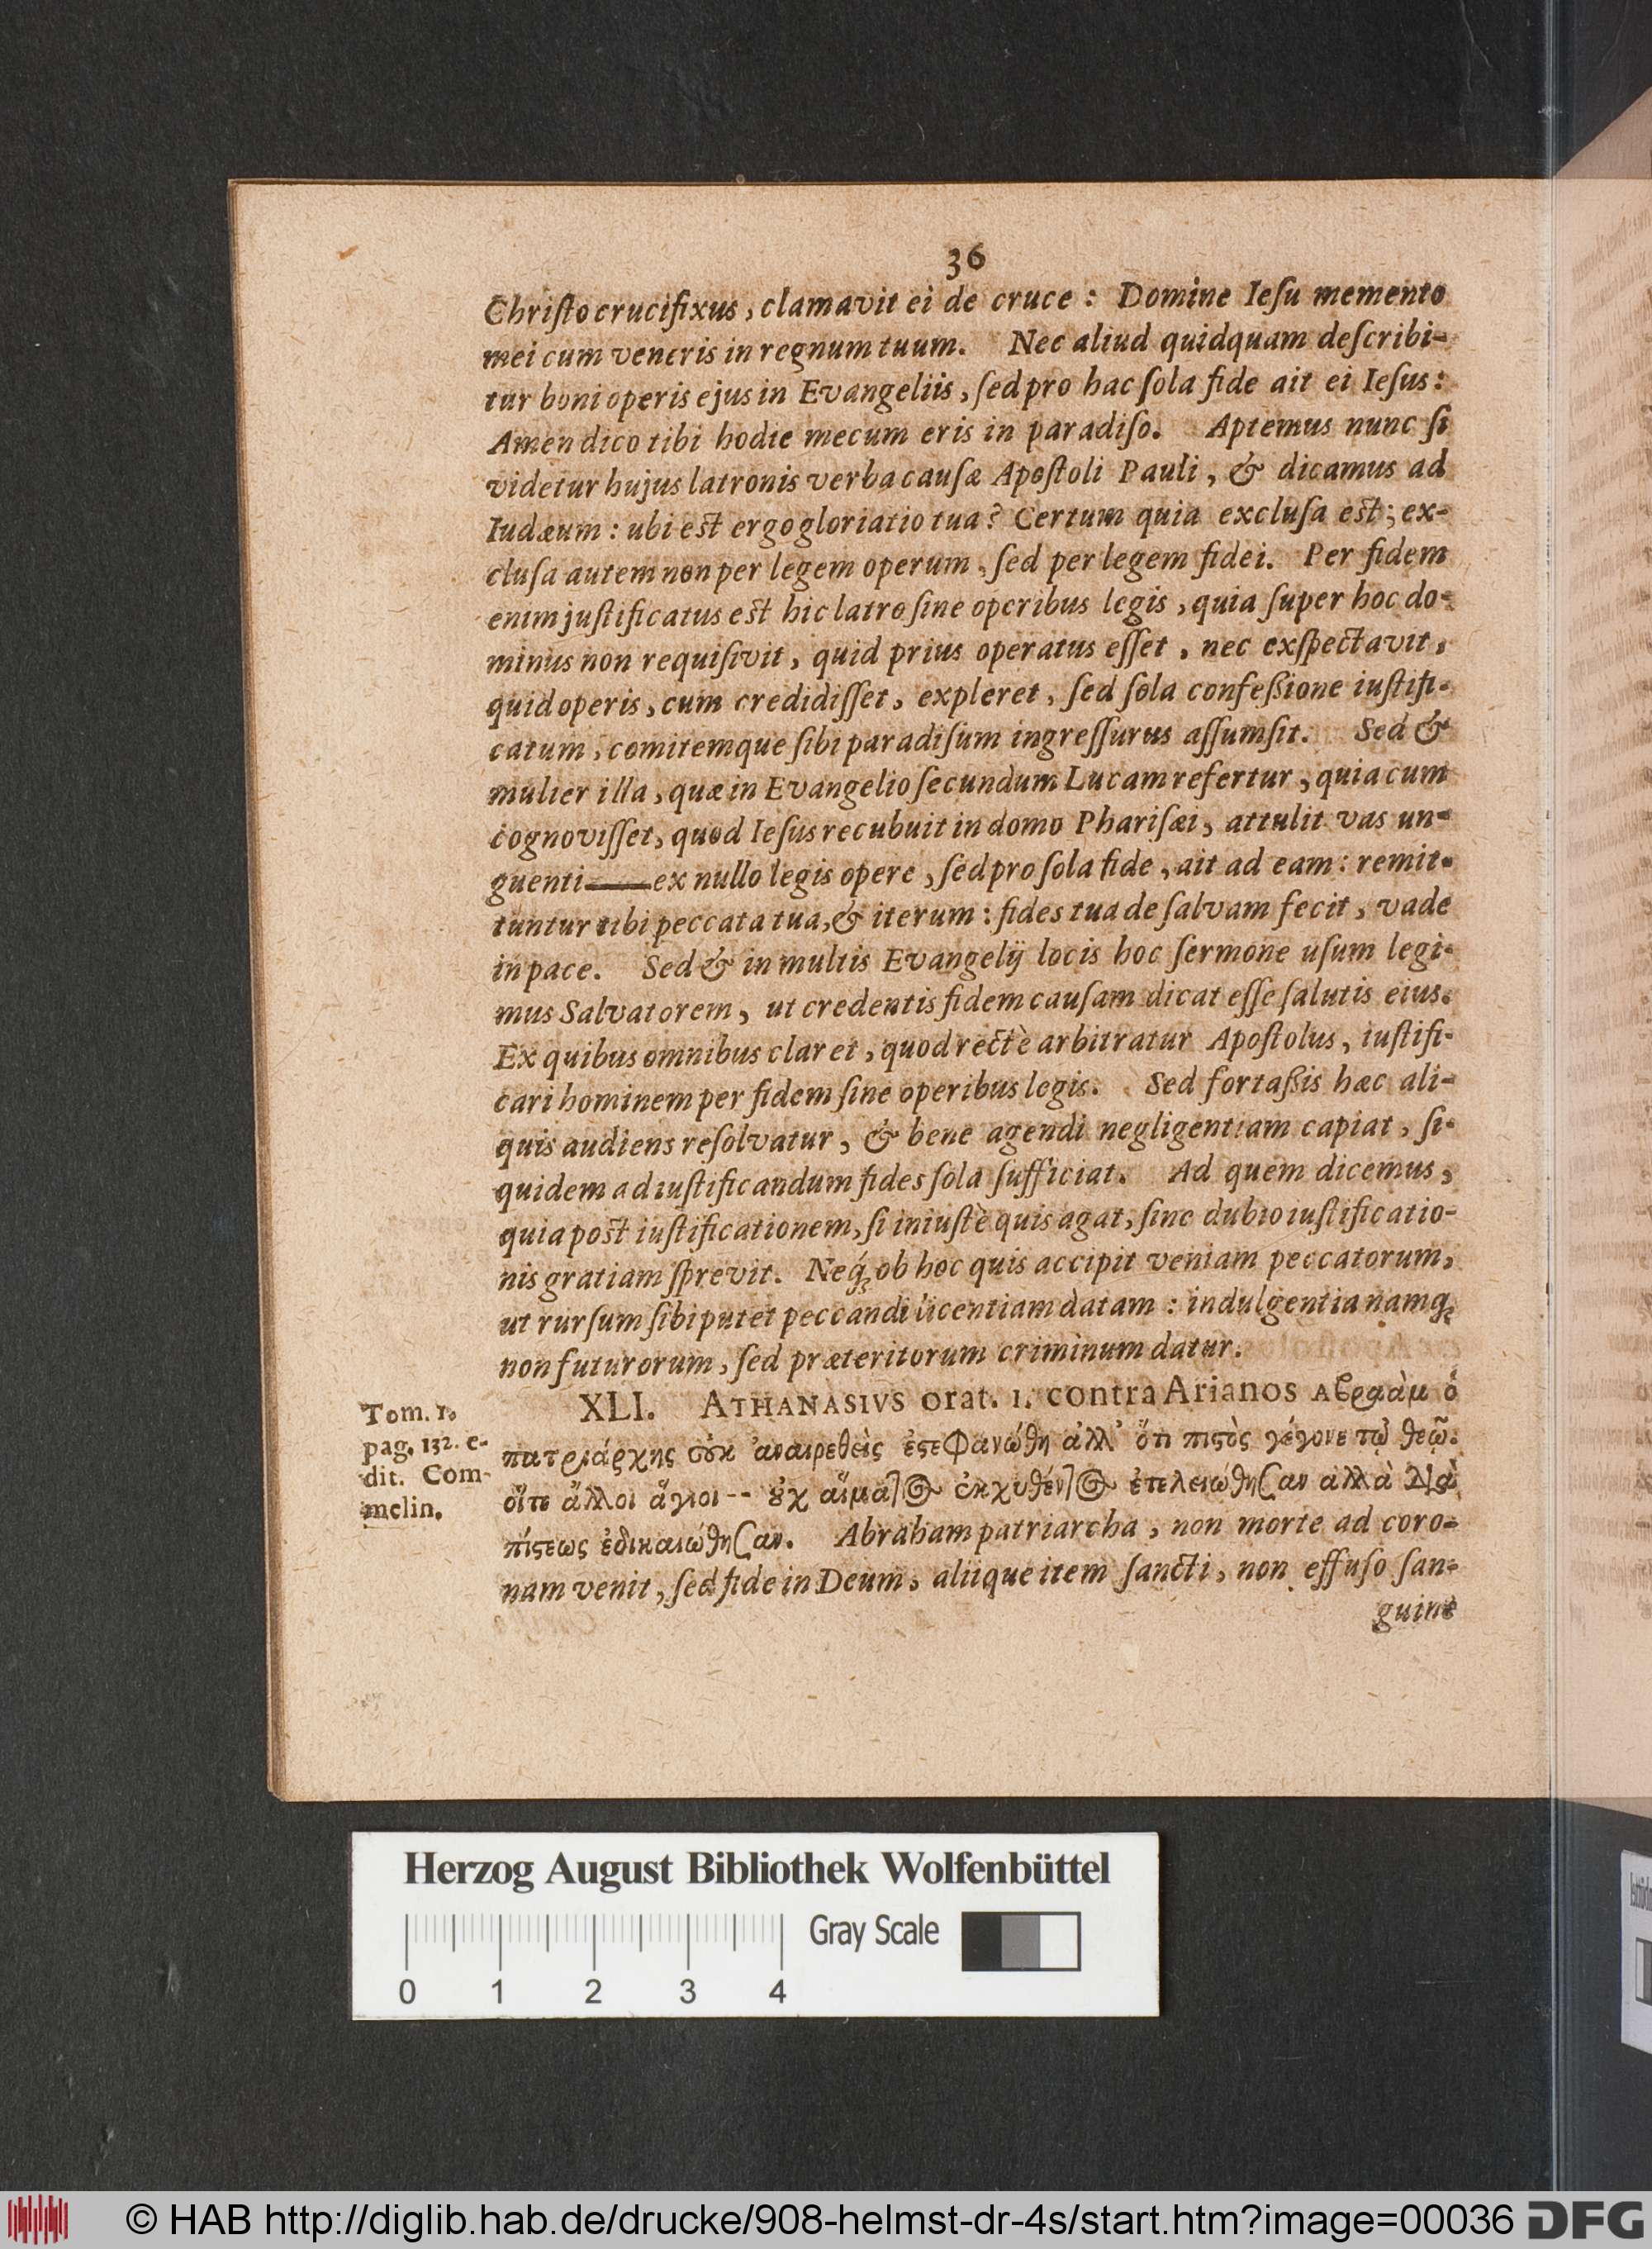 36
Chriſto crucifixus, clamavit ei de cruce: Domine Ieſu memento
mei cum veneris in regnum tuum. Nec aliud quidquam deſcribi-
tur boni operis ejus in Evangeliis, ſed pro hac ſola fide ait ei Ieſus:
Amen dico tibi hodie mecum eris in paradiſo. Aptemus nunc ſi
videtur hujus latronis verba cauſæ Apoſtoli Pauli, & dicamus ad
Iudæum: ubi eſt ergo gloriatio tua? Certum quia excluſa eſt; ex-
cluſa autem non per legem operum, ſed per legem fidei. Per fidem
enim juſtificatus eſt hic latro ſine operibus legis, quia ſuper hoc do-
minus non requiſivit, quid prius operatus eſſet, nec exſpectavit,
quid operis, cum credidiſſet, expleret, ſed ſola confeßione iuſtifi-
catum, comitemque ſibi paradiſum ingreſſurus aſſumſit. Sed &
mulier illa, quæ in Evangelio ſecundum Lucam refertur, quia cum
cognoviſſet, quod Ieſus recubuit in domo Phariſæi, attulit vas un-
guenti—— ex nullo legis opere, ſed pro ſola fide, ait ad eam: remit-
tuntur tibi peccata tua, & iterum: fides tua de ſalvam fecit, vade
in pace. Sed & in multis Evangelij locis hoc ſermone uſum legi-
mus Salvatorem, ut credentis fidem cauſam dicat eſſe ſalutis eius.
Ex quibus omnibus claret, quod rectè arbitratur Apoſtolus, iuſtifi-
cari hominem per fidem ſine operibus legis. Sed fortaßis hæc ali-
quis audiens reſolvatur, & bene agendi negligentiam capiat, ſi-
quidem ad iuſtificandum fides ſola ſufficiat. Ad quem dicemus,
quia poſt iuſtificationem, ſi iniuſtè quis agat, ſine dubio iuſtificatio-
nis gratiam ſprevit. Neq́; ob hoc quis accipit veniam peccatorum,
ut rurſum ſibi putet peccandi licentiam datam: indulgentia namq;
non futurorum, ſed præteritorum criminum datur.
XLI. ATHANASIVS orat. 1. contra Arianos Αβραὰμ ὁ
πατριάρχης οὐκ ἀναιρεθεὶς ἐϛεφανώθη ἀλλ᾽ ὅτι πιϛὸς γέγονε τῷ θεῷ.
οἵτε ἄλλοι ἅγιοι -- ȣ̓χ αἵματος ἐκχυθέντος ἐτελειώθησαν ἀλλὰ διὰ
πίϛεως ἐδικαιώθησαν. Abraham patriarcha, non morte ad coro-
nam venit, ſed fide in Deum, aliique item ſancti, non effuſo ſan-
guine
Tom. 1.
pag. 132. e-
dit. Com-
melin.
Herzog August Bibliothek Wolfenbüttel
Gray Scale
0 1 2 3 4
© HAB http://diglib.hab.de/drucke/908-helmst-dr-4s/start.htm?image=00036 DFG